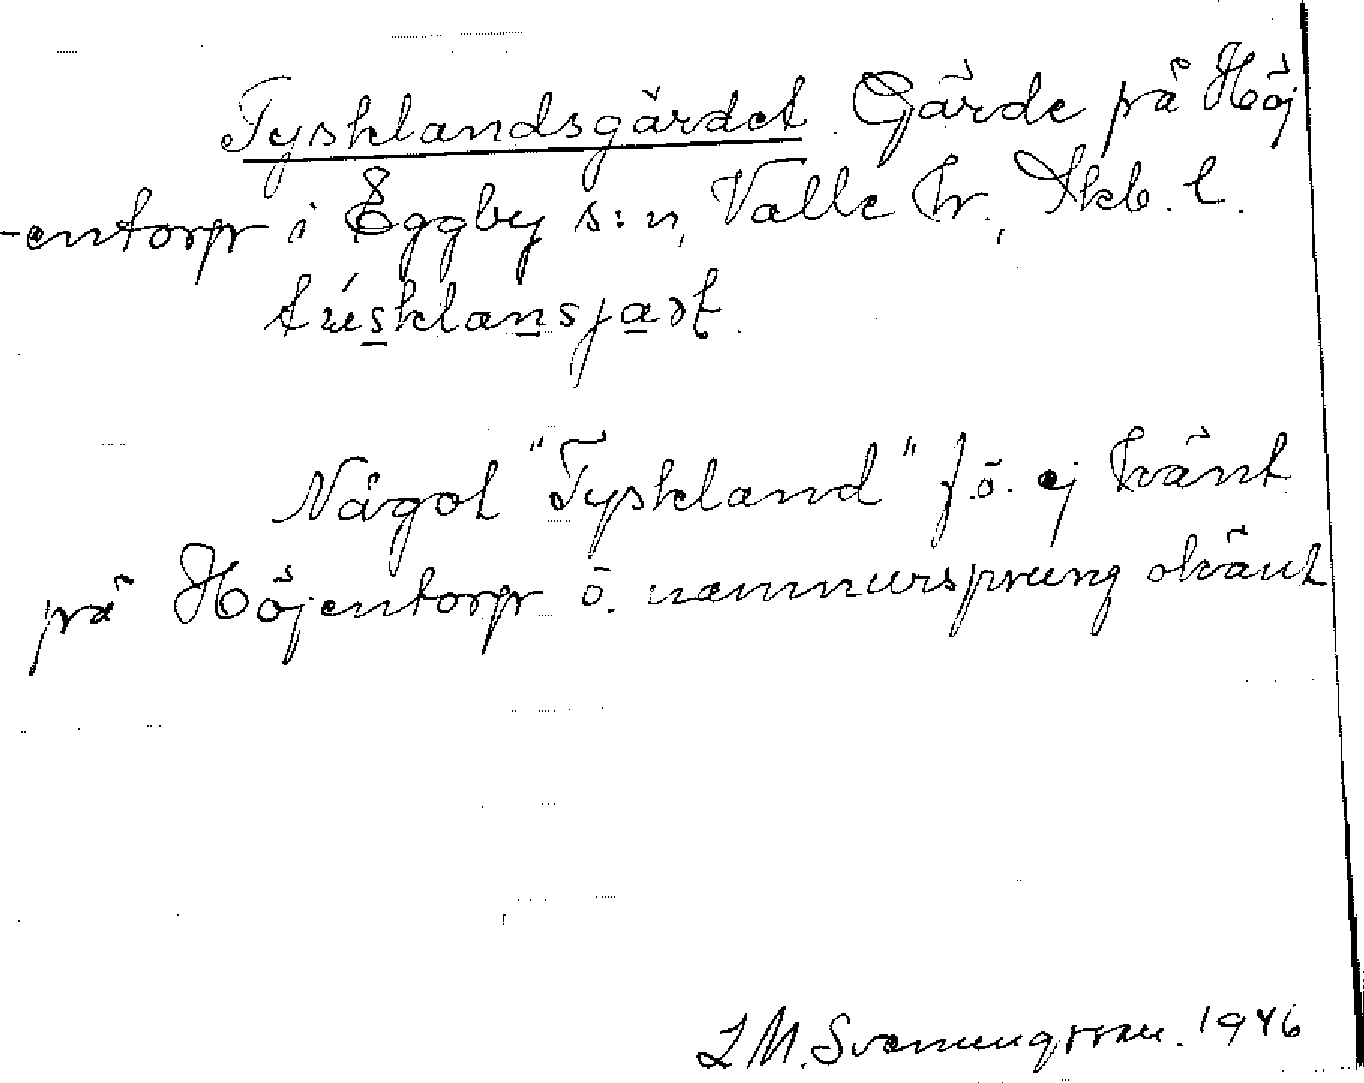 Tysklandsgärdet. Gärde på Höj
-entorp i Eggby s:n, Valle hr., Skb. l.
Något "Tyskland" f. ö. ej känt
på Höjentorp o. namnursprung okänt
L M. Svenungsson. 1946